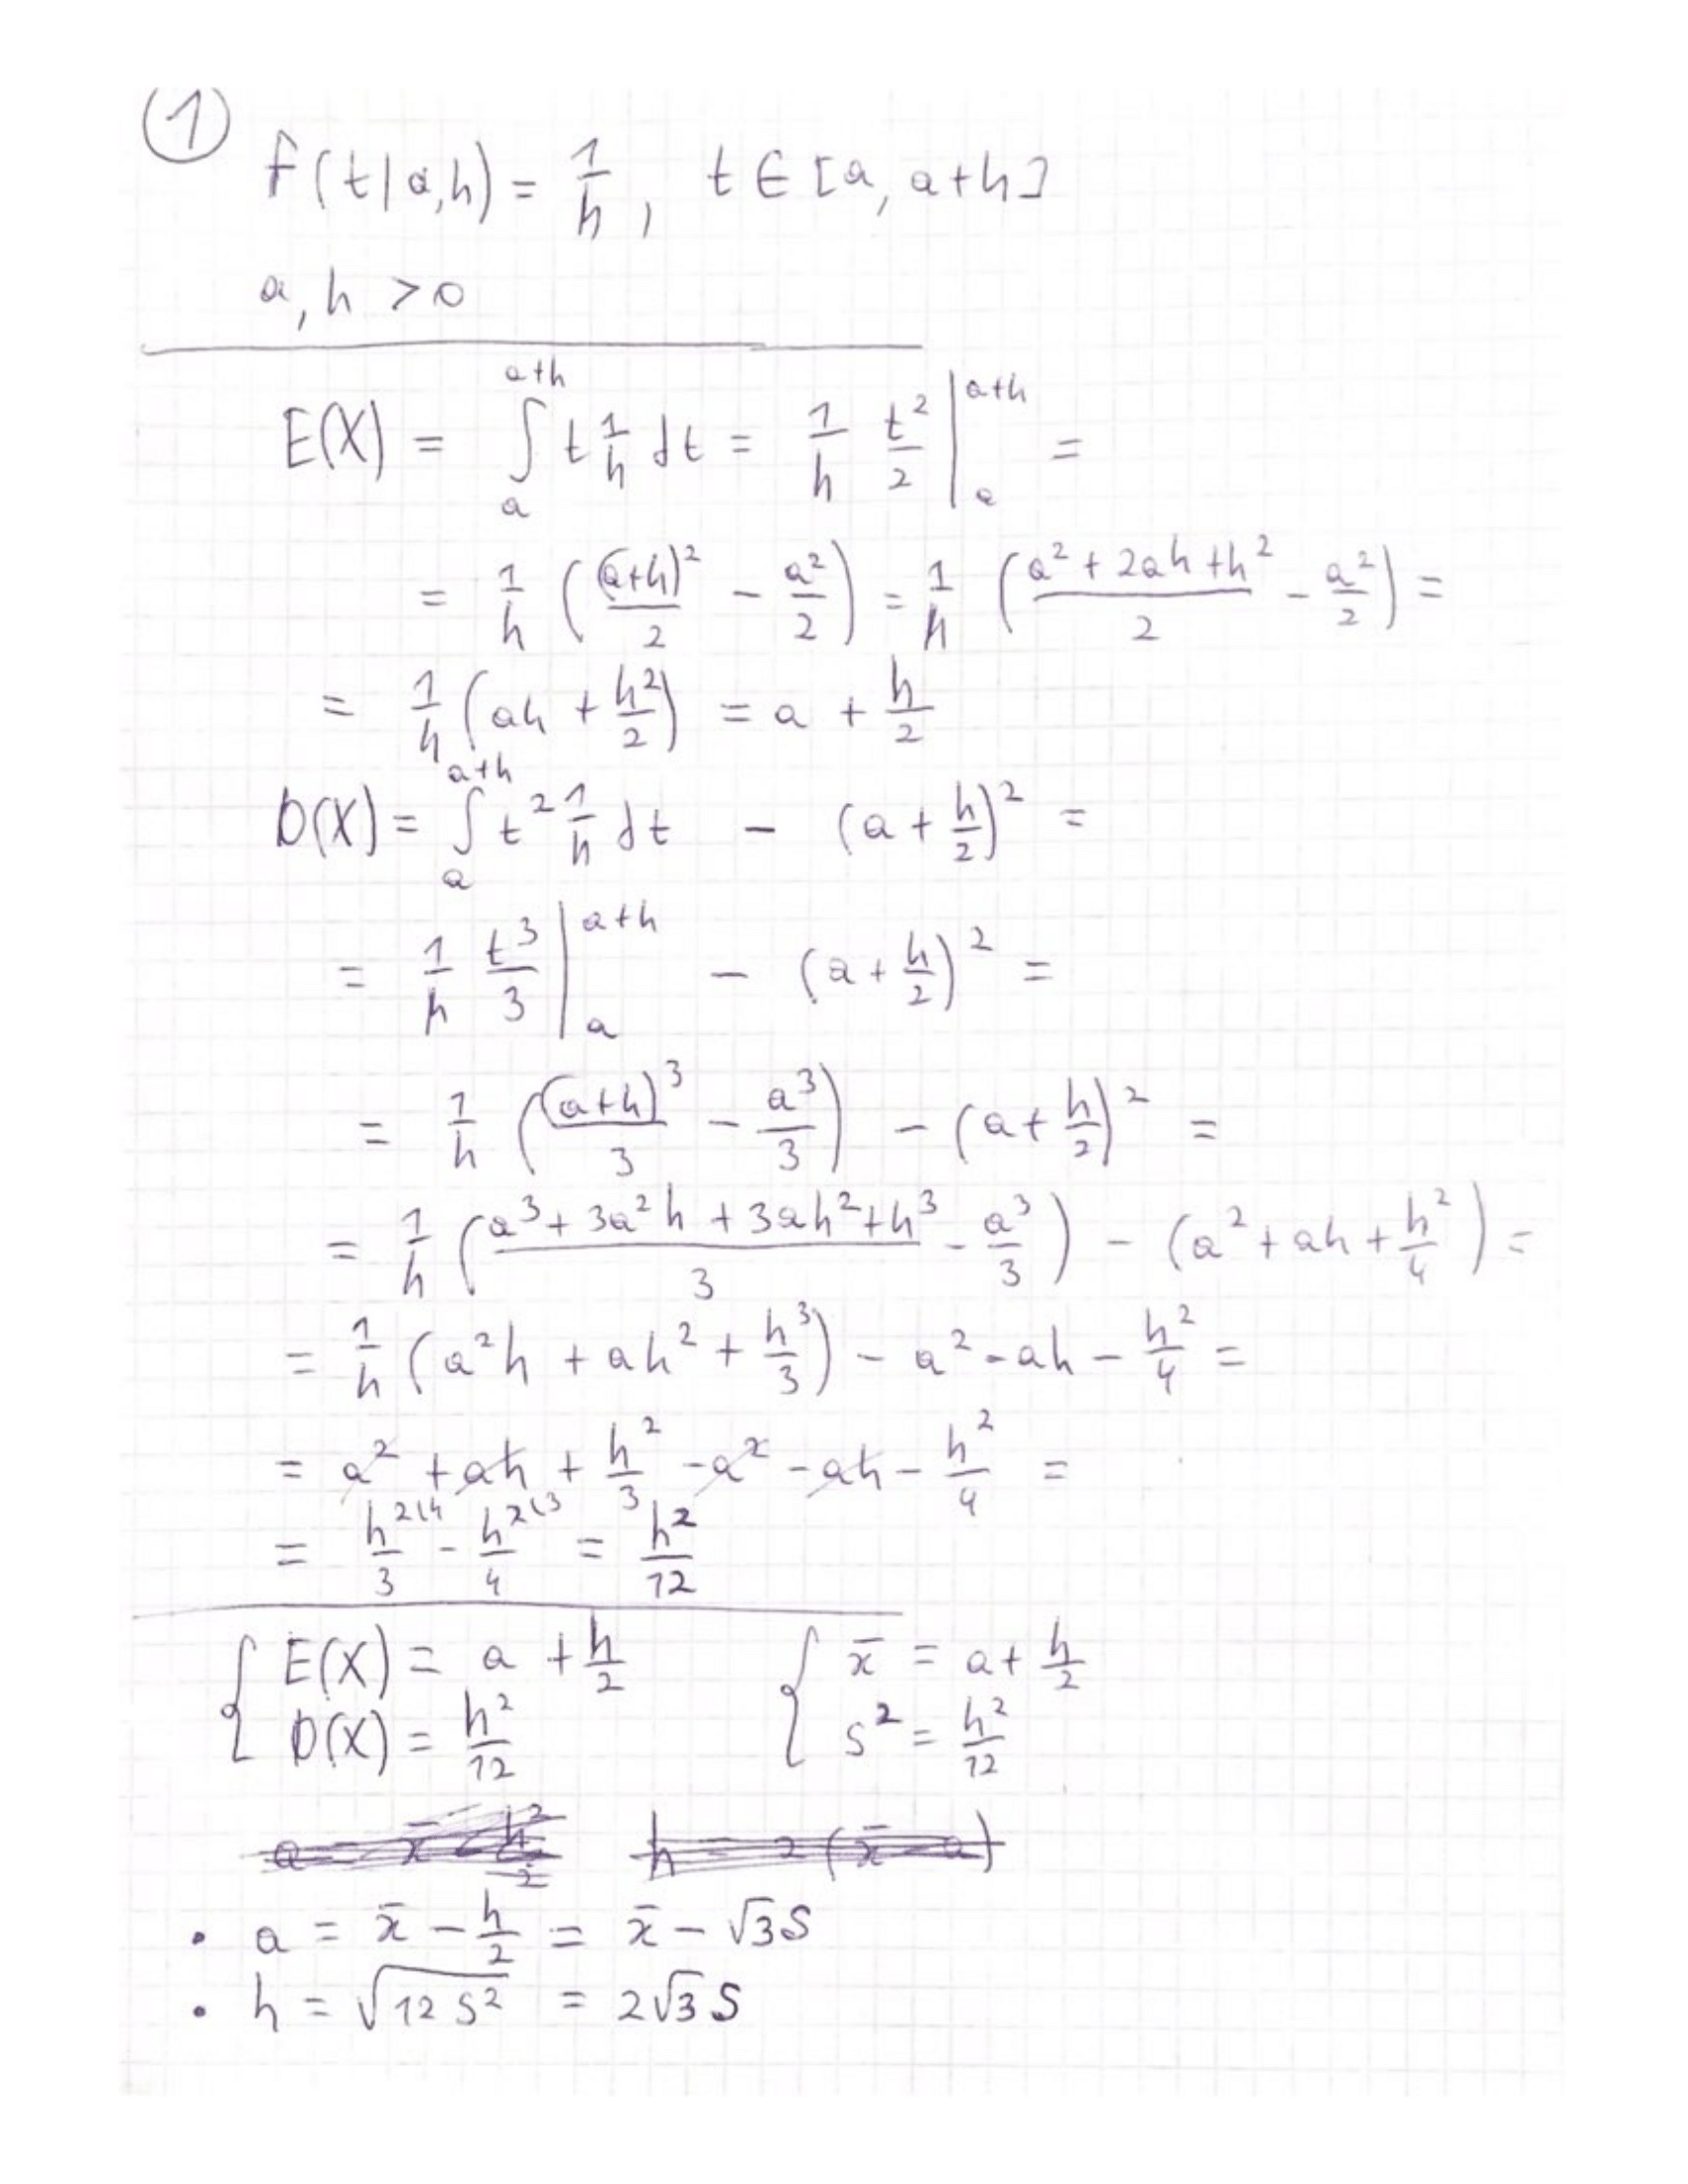 ①
f(t|a,h) = 1/h , t ∈ [a, a+h]
a, h > 0
E(X) = ∫_a^{a+h} t 1/h dt = 1/h t²/2 |_a^{a+h} =
= 1/h ((a+h)²/2 - a²/2) = 1/h ((a² + 2ah + h²)/2 - a²/2) =
= 1/h (ah + h²/2) = a + h/2
D(X) = ∫_a^{a+h} t² 1/h dt - (a + h/2)² =
= 1/h t³/3 |_a^{a+h} - (a + h/2)² =
= 1/h ((a+h)³/3 - a³/3) - (a + h/2)² =
= 1/h ((a³ + 3a²h + 3ah² + h³)/3 - a³/3) - (a² + ah + h²/4) =
= 1/h (a²h + ah² + h³/3) - a² - ah - h²/4 =
= a² + ah + h²/3 - a² - ah - h²/4 =
= h²⁽⁴/3 - h²⁽³/4 = h²/12
{ E(X) = a + h/2 { x̄ = a + h/2
D(X) = h²/12 S² = h²/12
h = 2(x̄ - a)
• a = x̄ - h/2 = x̄ - √3S
• h = √(12S²) = 2√3S